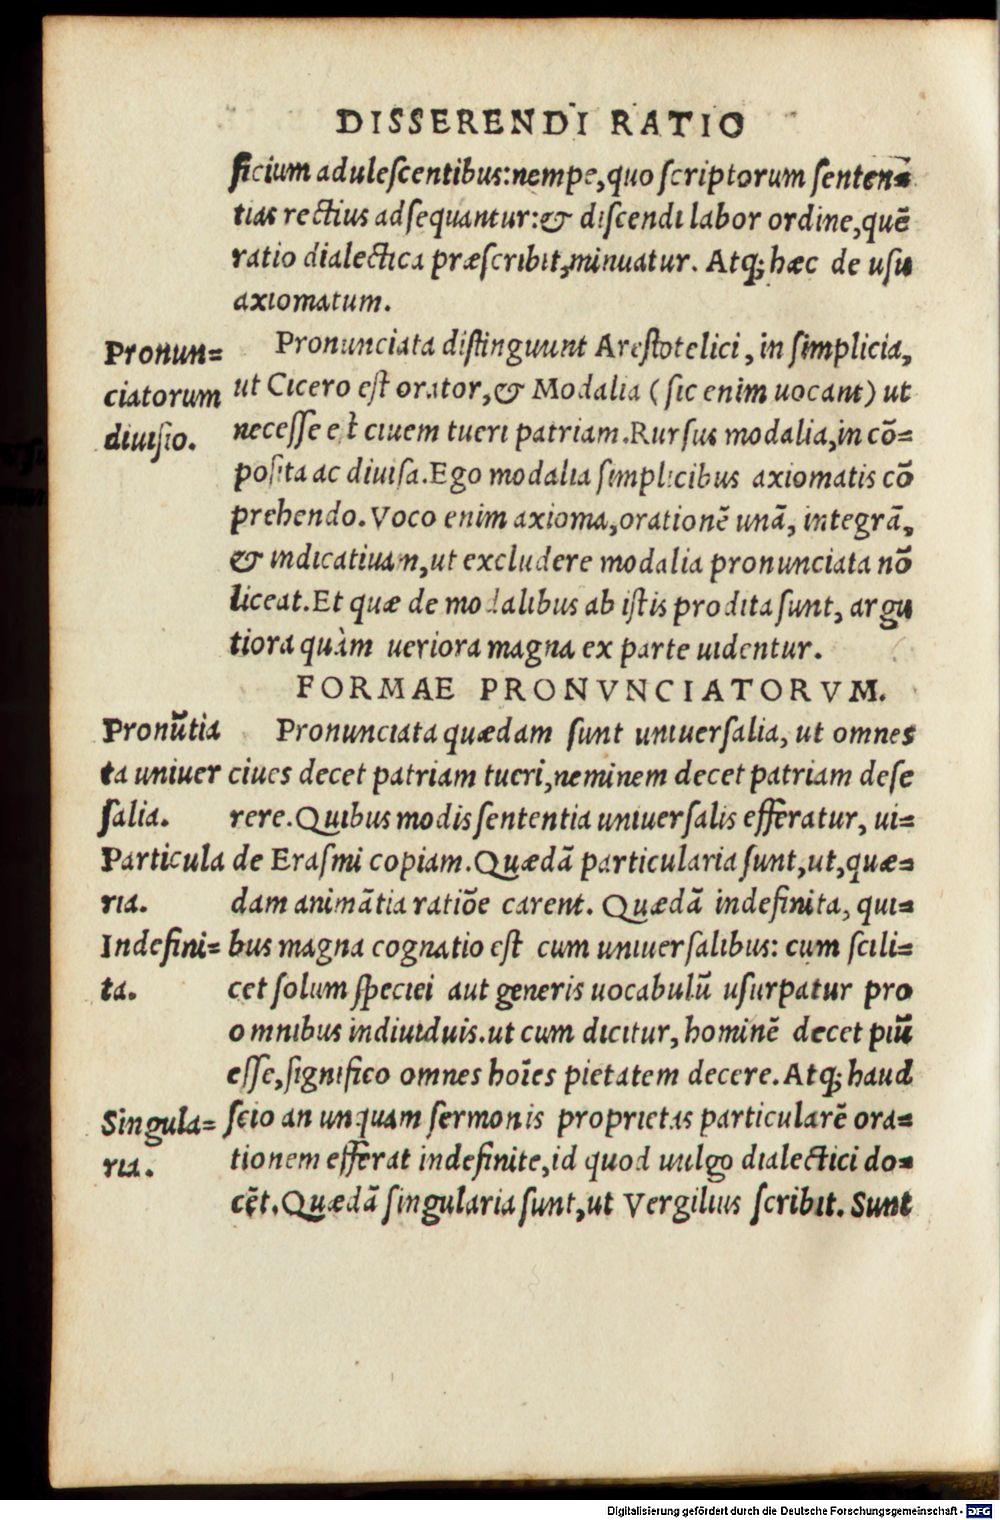 DISSERENDI RATIO
ficium adulescentibus:nempe,quo scriptorum senten=
tias rectius adsequantur:& discendi labor ordine,quē
ratio dialectica præscribit,minuatur. Atq; hæc de usu
axiomatum.
Pronun=
ciatorum
diuisio.
Pronunciata distinguunt Arestotelici, in simplicia,
ut Cicero est orator,& Modalia (sic enim uocant) ut
necesse est ciuem tueri patriam.Rursus modalia,in cō=
posita ac diuisa.Ego modalia simplicibus axiomatis cō
prehendo.Voco enim axioma,orationē unā, integrā,
& indicatiuam,ut excludere modalia pronunciata nō
liceat.Et quæ de modalibus ab istis prodita sunt, argu
tiora quàm ueriora magna ex parte uidentur.
FORMAE PRONVNCIATORVM.
Pronūtia
ta uniuer
salia.
Particula
ria.
Indefini=
ta.
Singula=
ria.
Pronunciata quædam sunt uniuersalia, ut omnes
ciues decet patriam tueri,neminem decet patriam dese
rere.Quibus modis sententia uniuersalis efferatur, ui=
de Erasmi copiam.Quædā particularia sunt,ut,quæ=
dam animātia ratiōe carent. Quædā indefinita, qui=
bus magna cognatio est cum uniuersalibus: cum scili=
cet solum speciei aut generis uocabulū usurpatur pro
omnibus indiuiduis.ut cum dicitur, hominē decet piū
esse,significo omnes hoīes pietatem decere.Atq; haud
scio an unquam sermonis proprietas particularē ora=
tionem efferat indefinite,id quod uulgo dialectici do=
cēt.Quædā singularia sunt,ut Vergilius scribit. Sunt
Digitalisierung gefördert durch die Deutsche Forschungsgemeinschaft - DFG